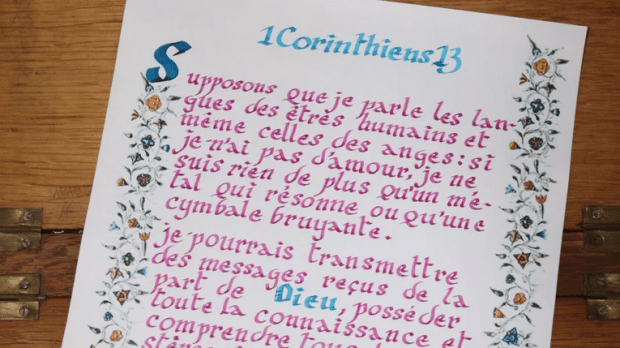 1 Corinthiens 13
Supposons que je parle les lan-
gues des êtres humains et
même celles des anges: si
je n'ai pas d'amour, je ne
suis rien de plus qu'un mé-
tal qui résonne ou qu'une
cymbale bruyante.
je pourrais transmettre
des messages reçus de la
part de Dieu, posséder
toute la connaissance et
comprendre tous